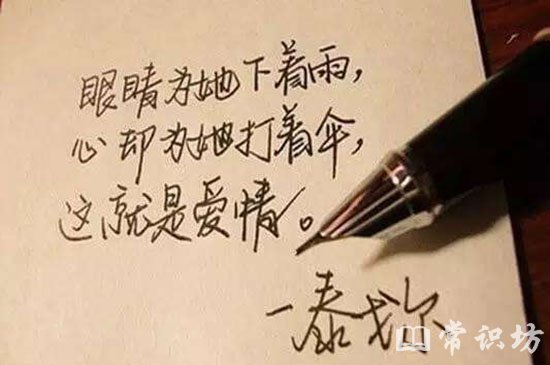 眼睛为她下着雨，
心却为她打着伞，
这就是爱情。
—泰戈尔
常识坊